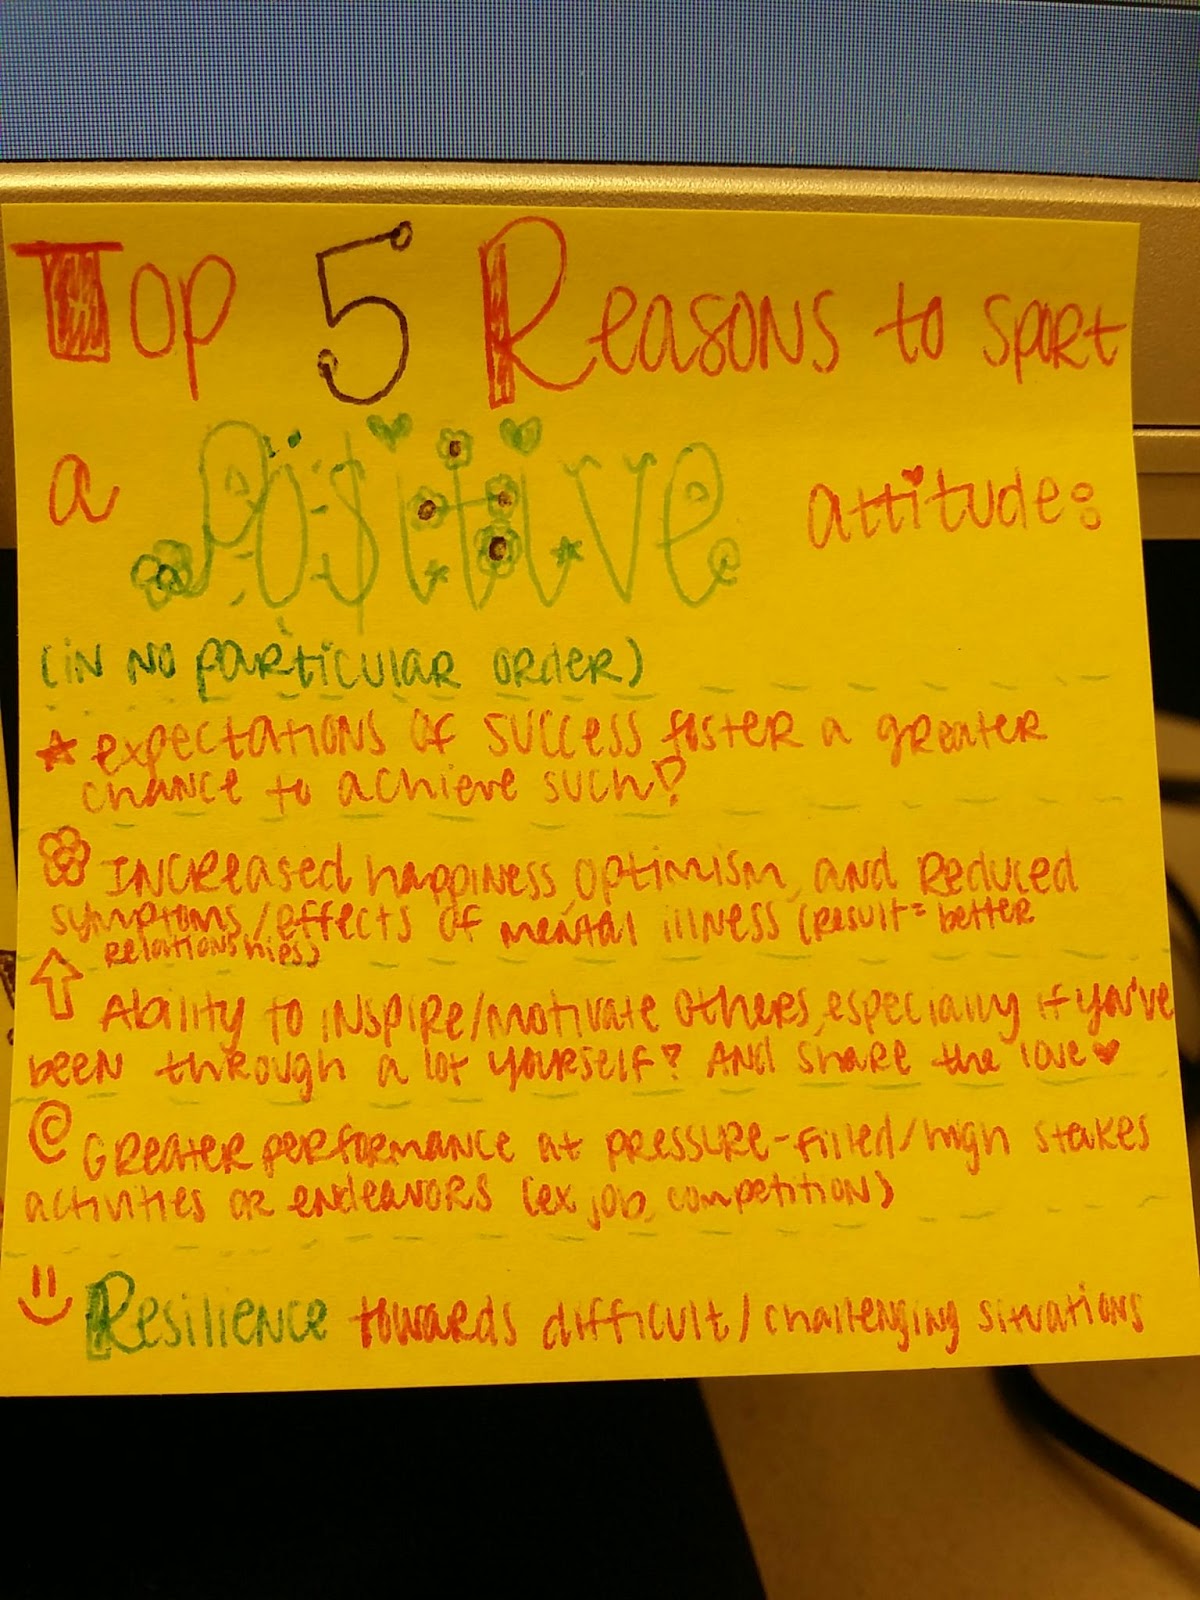 Top 5 Reasons to sport
a Positive attitude:
(in no particular order)
expectations of success foster a greater
chance to achieve such!
Increased happiness, optimism, and reduced
symptoms/effects of mental illness (result= better
relationships)
Ability to inspire/motivate others, especially if you've
been through a lot yourself! And share the love
Greater performance at pressure-filled/high stakes
activities or endeavors (ex job, competition)
Resilience towards difficult/challenging situations